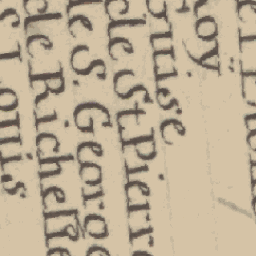 Roy
ouise
de St. Pierr
le S. George
de Richelie
s Louis